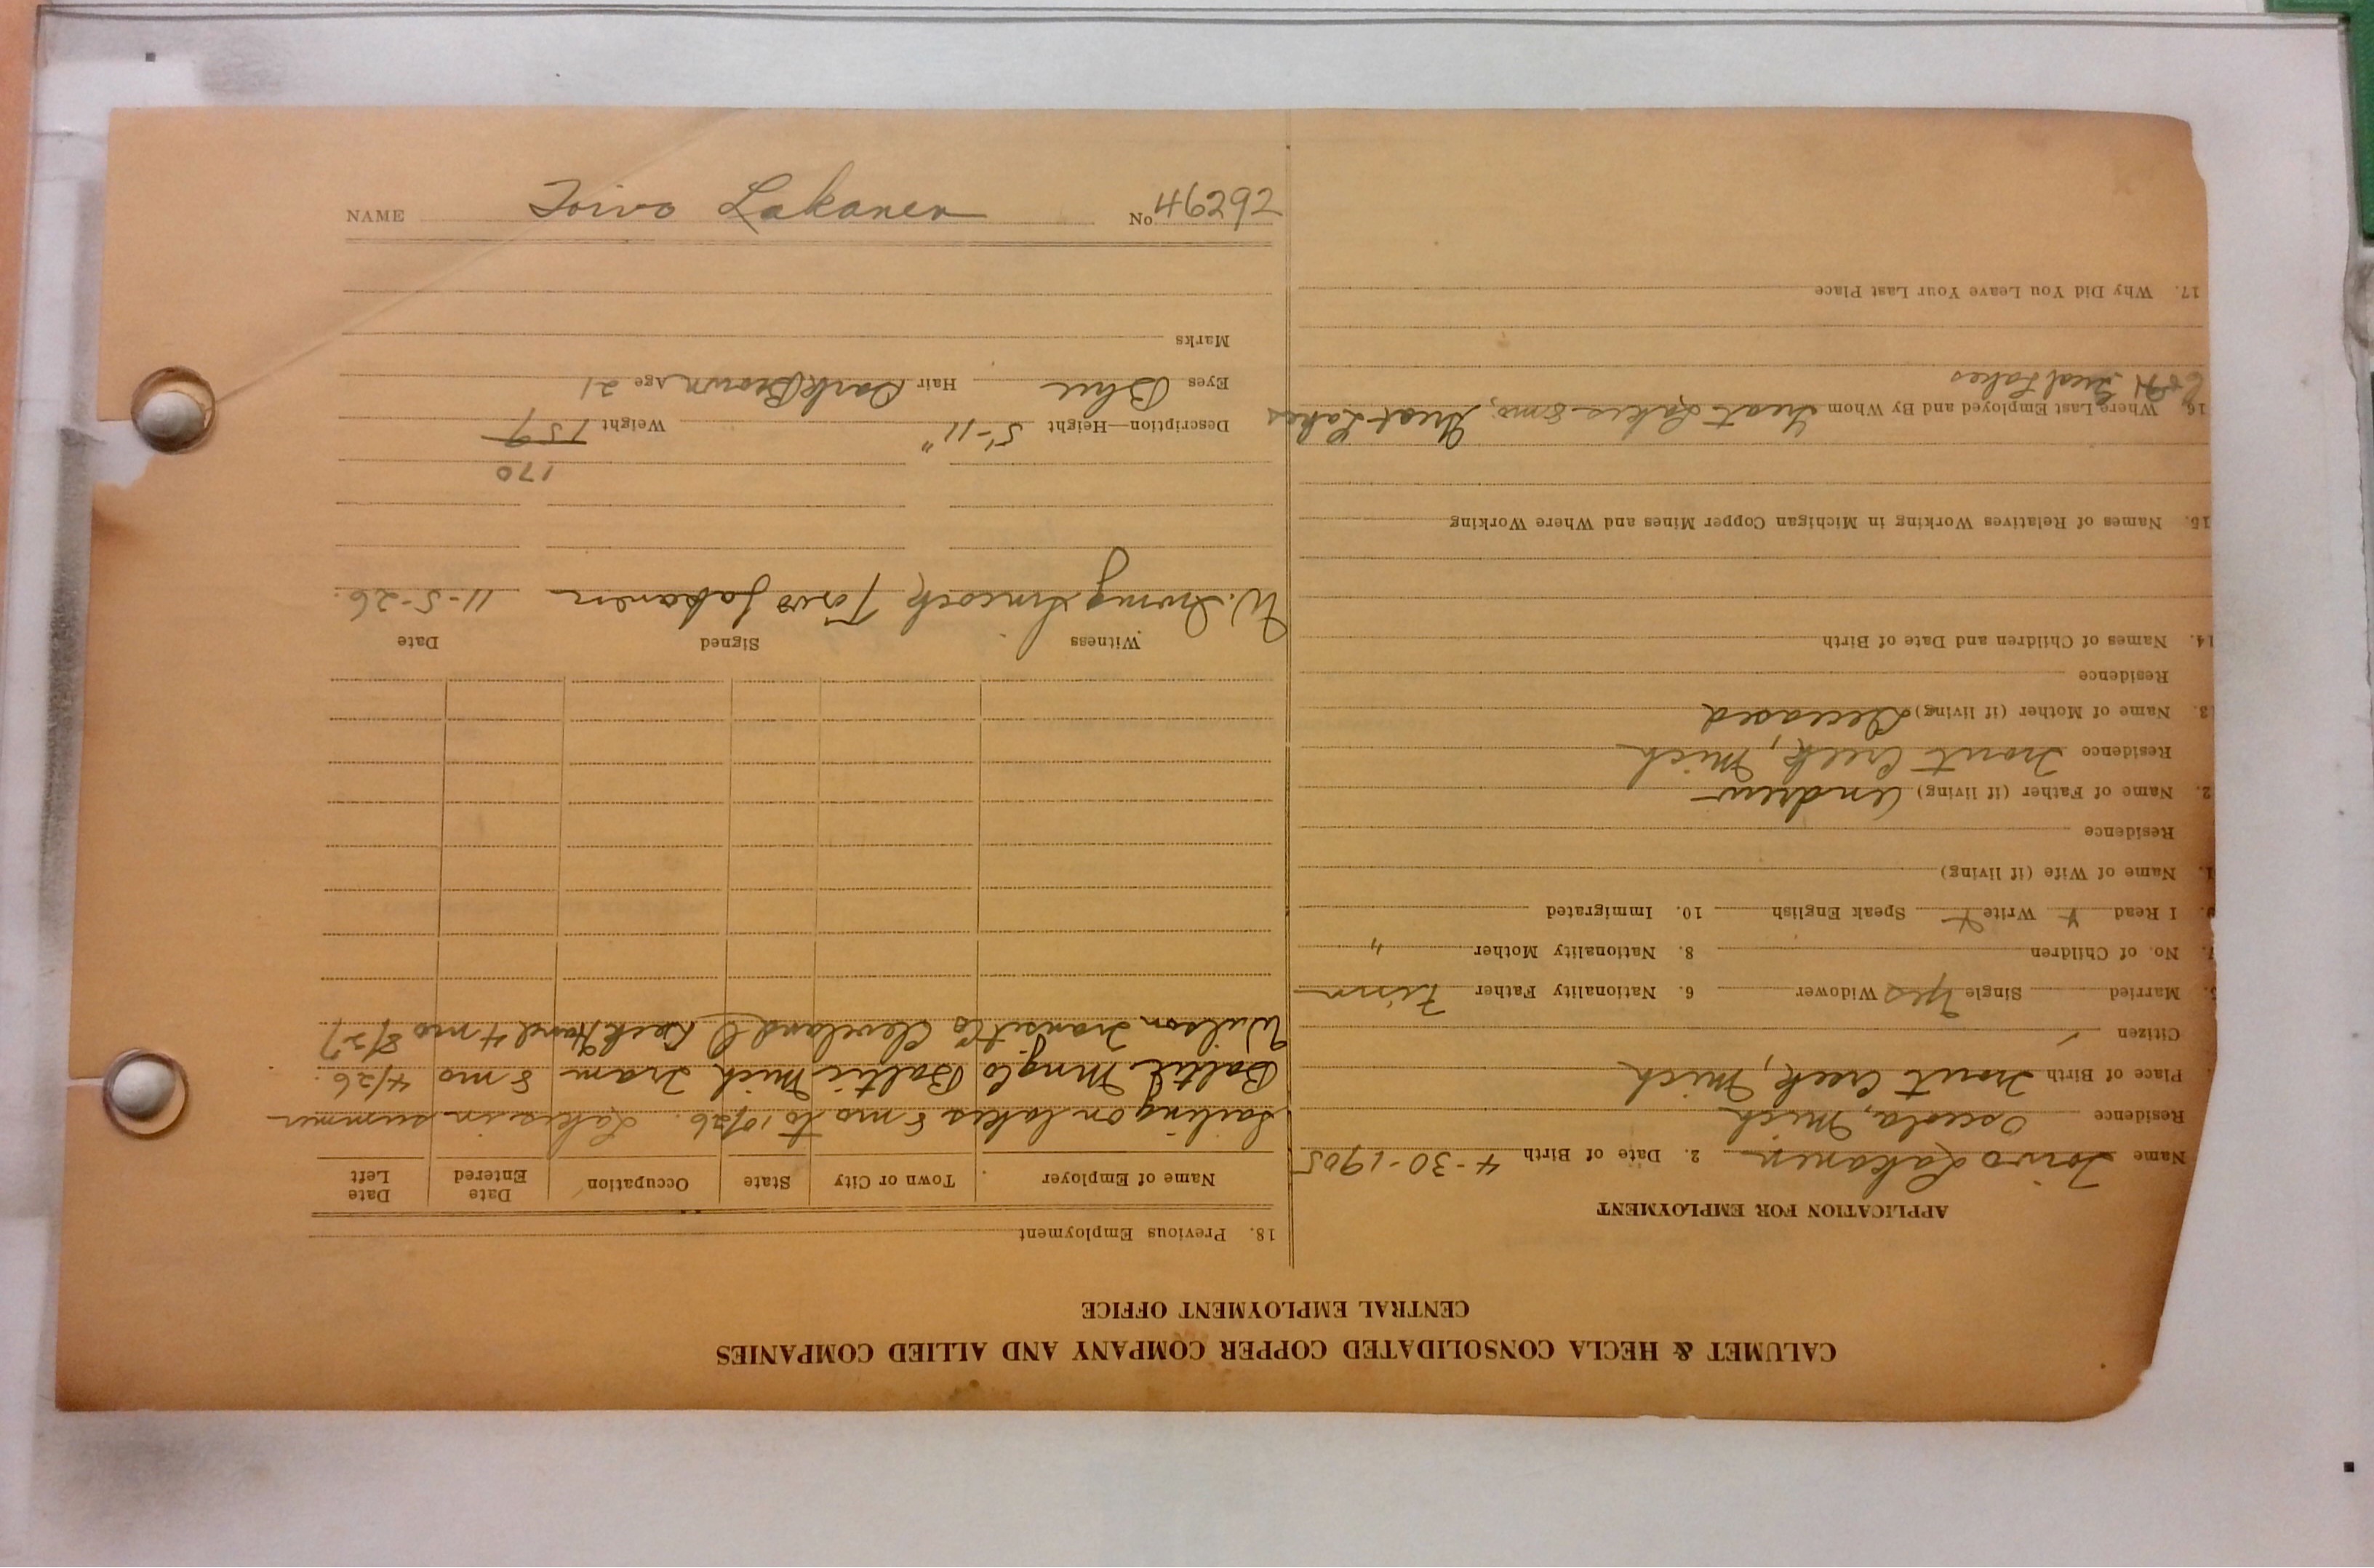 CALUMET & HECLA CONSOLIDATED COPPER COMPANY AND ALLIED COMPANIES
CENTRAL EMPLOYMENT OFFICE
APPLICATION FOR EMPLOYMENT
Name Toivo Lakanen 2. Date of Birth 4-30-1905
Residence Osceola, Mich
Place of Birth Trout Creek, Mich
Citizen
Married Single Yes Widower 6. Nationality Father Finn
7. No. of Children 8. Nationality Mother "
I Read Y Write Y Speak English 10. Immigrated
1. Name of Wife (if living)
Residence
2. Name of Father (if living) Andrew
Residence Trout Creek, Mich
3. Name of Mother (if living) Deceased
Residence
14. Names of Children and Date of Birth
15. Names of Relatives Working in Michigan Copper Mines and Where Working
16. Where Last Employed and By Whom Great Lakes 8 mo, Great Lakes
C&H Great Lakes
17. Why Did You Leave Your Last Place
18. Previous Employment
Name of Employer Town or City State Occupation Date Entered Date Left
Sailing on lakes 8 mo to 10/26. Lakes in summer
Baltic Mng Co Baltic Mich Tram 8 mo 4/26.
Wilson Transit Co Cleveland O Deck Hand 4 mo 8/27
Witness Signed Date
W. Irving Toivo Lakanen 11-5-26.
170
Description—Height 5'-11" Weight 159
Eyes Blue Hair Dark Brown Age 21
Marks
NAME Toivo Lakanen No. 46292